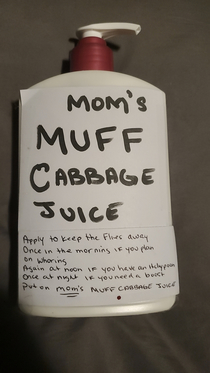 Mom's
MUFF
CABBAGE
JUICE
Apply to keep the Flies away
Once in the morning if you plan
on whoring
Again at noon IF you have an itchy
Once at night if you need a boost
Put on Mom's MUFF CABBAGE JUICE